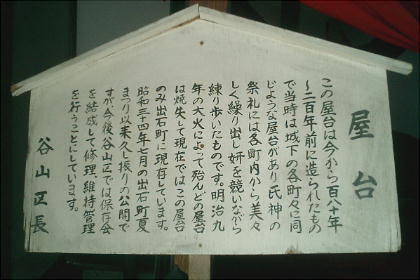 屋台
この屋台は今から百八十年
～二百年前に造られたもの
で当時は城下の各町々に同
じような屋台があり氏神の
祭礼には各町内から美々
しく繰り出し妍を競いながら
練り歩いたものです。明治九
年の大火によって殆んどの屋台
は焼失して現在ではこの屋台
のみ出石町に現存しています。
昭和三十四年七月の出石町夏
まつり以来久し振りの公開で
すが今後谷山区では保存会
を結成して修理、維持管理
を行うことにしています。
谷山区長